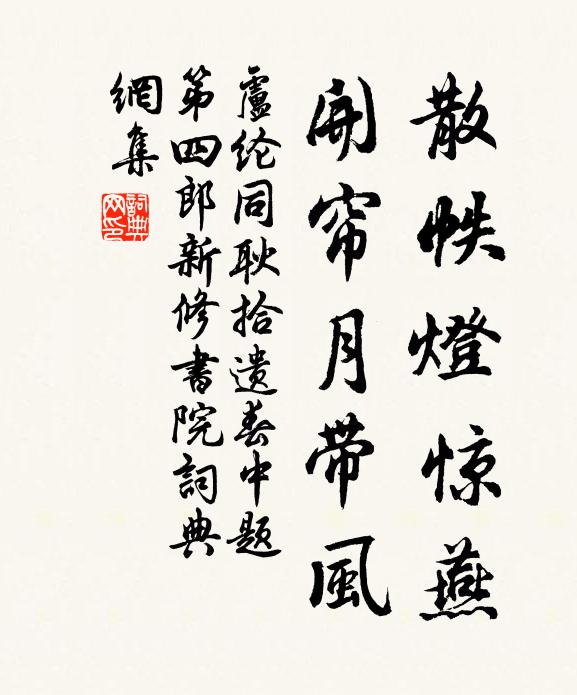 散帙燈惊燕
開帘月带風
盧纶同耿拾遗春中題
第四郎新修書院詞典
網集
詞典
网印